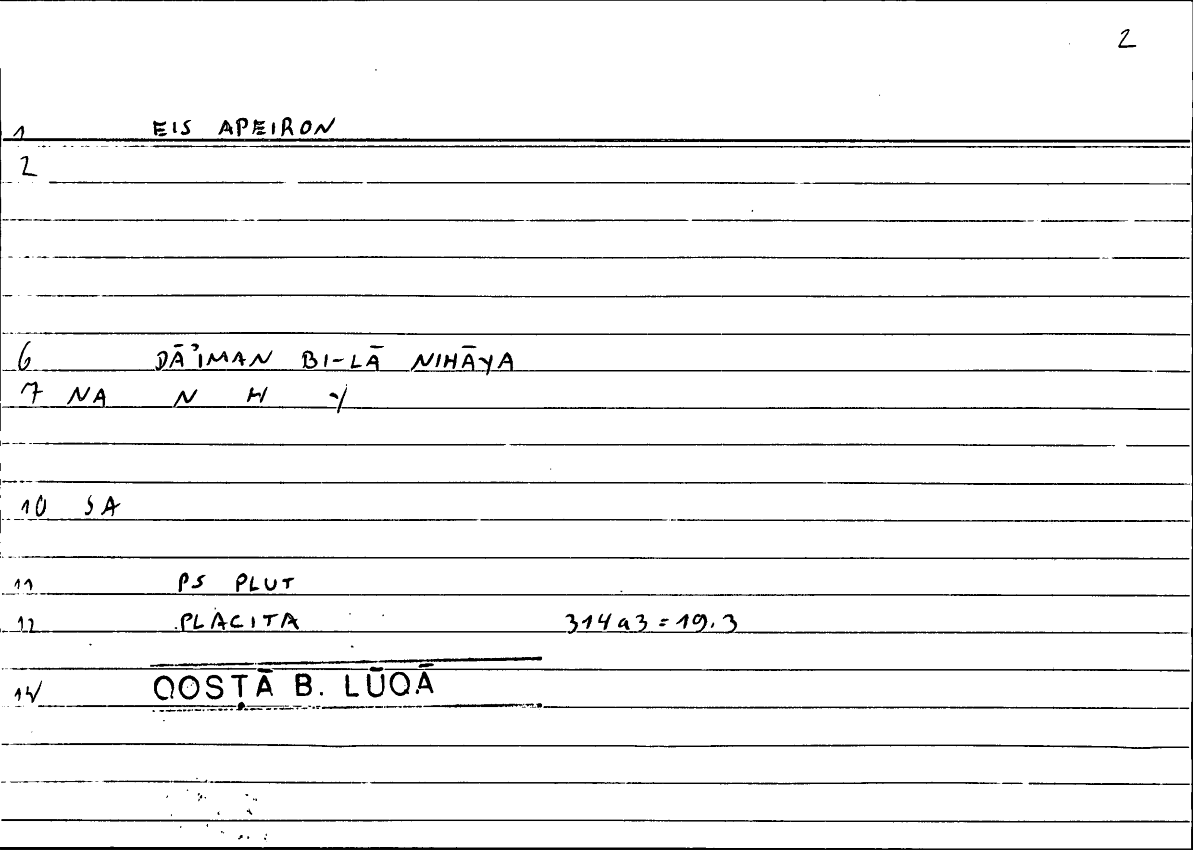 2
1 EIS APEIRON
2
6 DĀʾIMAN BI-LĀ NIHĀYA
7 NA N H Y
10 SA
11 PS PLUT
12 PLACITA 314a3=19.3
14 QOSṬĀ B. LŪQĀ